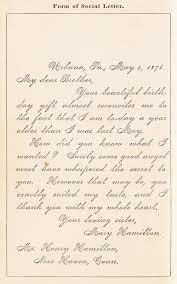 Form of Social Letter.
Urbana, Pa., May 2, 1876.
My dear Brother,
Your beautiful birth-
day gift almost reconciles me to
the fact that I am to-day a year
older than I was last May.
How did you know what I
wanted? Surely some good angel
must have whispered the secret to
you. However that may be, you
exactly suited my taste, and I
thank you with my whole heart.
Your loving sister,
Mary Hamilton.
Mr. Henry Hamilton,
New Haven, Conn.